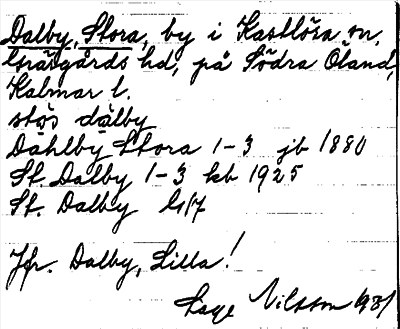 Dalby, Stora, by i Kastlösa sn,
Gräsgårds hd, på Södra Öland,
Kalmar l.
stọs dalby
Dahlby Stora 1-3 jb 1880
St. Dalby 1-3 kb 1925
St. Dalby
Jfr. Dalby, Lilla!
Lage Nilsson 1981